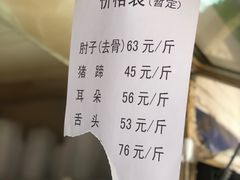 价格表(暂定)
肘子(去骨)63 元/斤
猪 蹄 45 元/斤
耳 朵 56 元/斤
舌 头 53 元/斤
76 元/斤